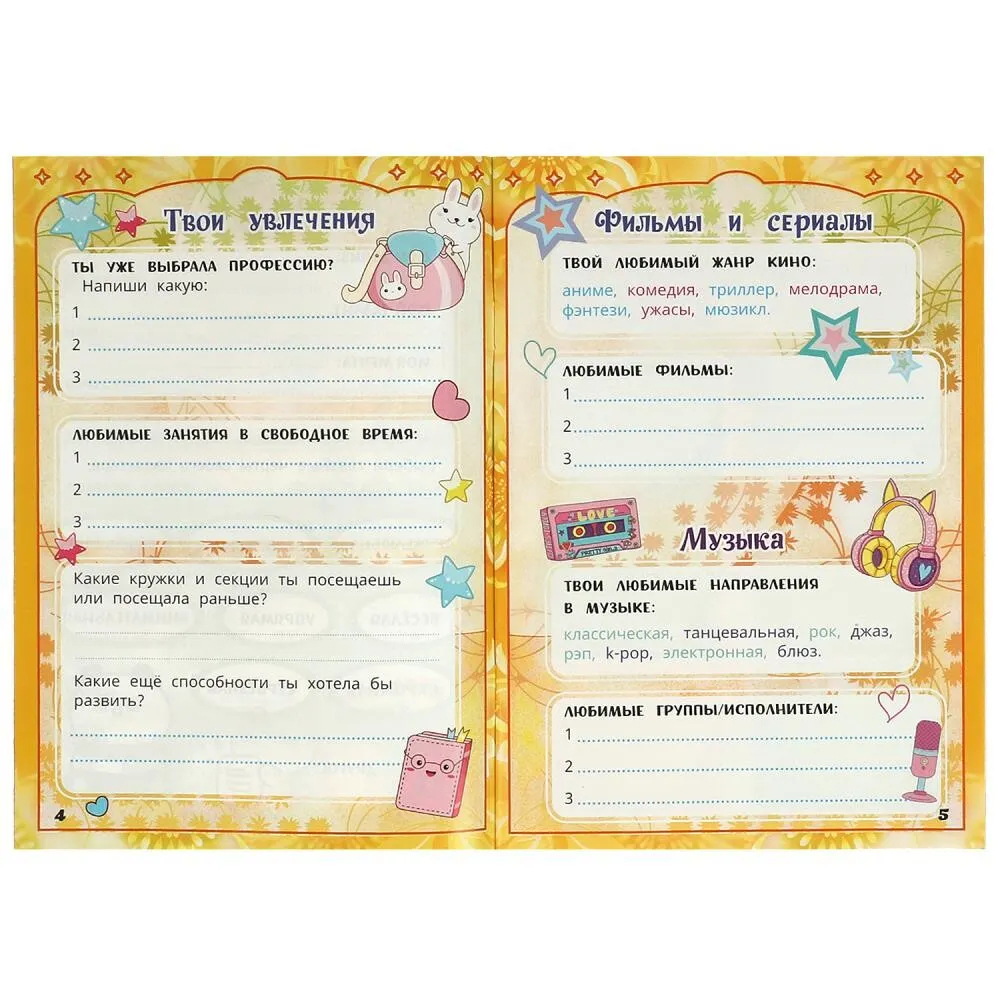 Твои увлечения
ТЫ УЖЕ ВЫБРАЛА ПРОФЕССИЮ?
Напиши какую:
1
2
3
ЛЮБИМЫЕ ЗАНЯТИЯ В СВОБОДНОЕ ВРЕМЯ:
1
2
3
Какие кружки и секции ты посещаешь
или посещала раньше?
Какие ещё способности ты хотела бы
развить?
4
Фильмы и сериалы
ТВОЙ ЛЮБИМЫЙ ЖАНР КИНО:
аниме, комедия, триллер, мелодрама,
фэнтези, ужасы, мюзикл.
ЛЮБИМЫЕ ФИЛЬМЫ:
1
2
3
LOVE
PRETTY GIRLS
Музыка
ТВОИ ЛЮБИМЫЕ НАПРАВЛЕНИЯ
В МУЗЫКЕ:
классическая, танцевальная, рок, джаз,
рэп, k-pop, электронная, блюз.
ЛЮБИМЫЕ ГРУППЫ/ИСПОЛНИТЕЛИ:
1
2
3
5